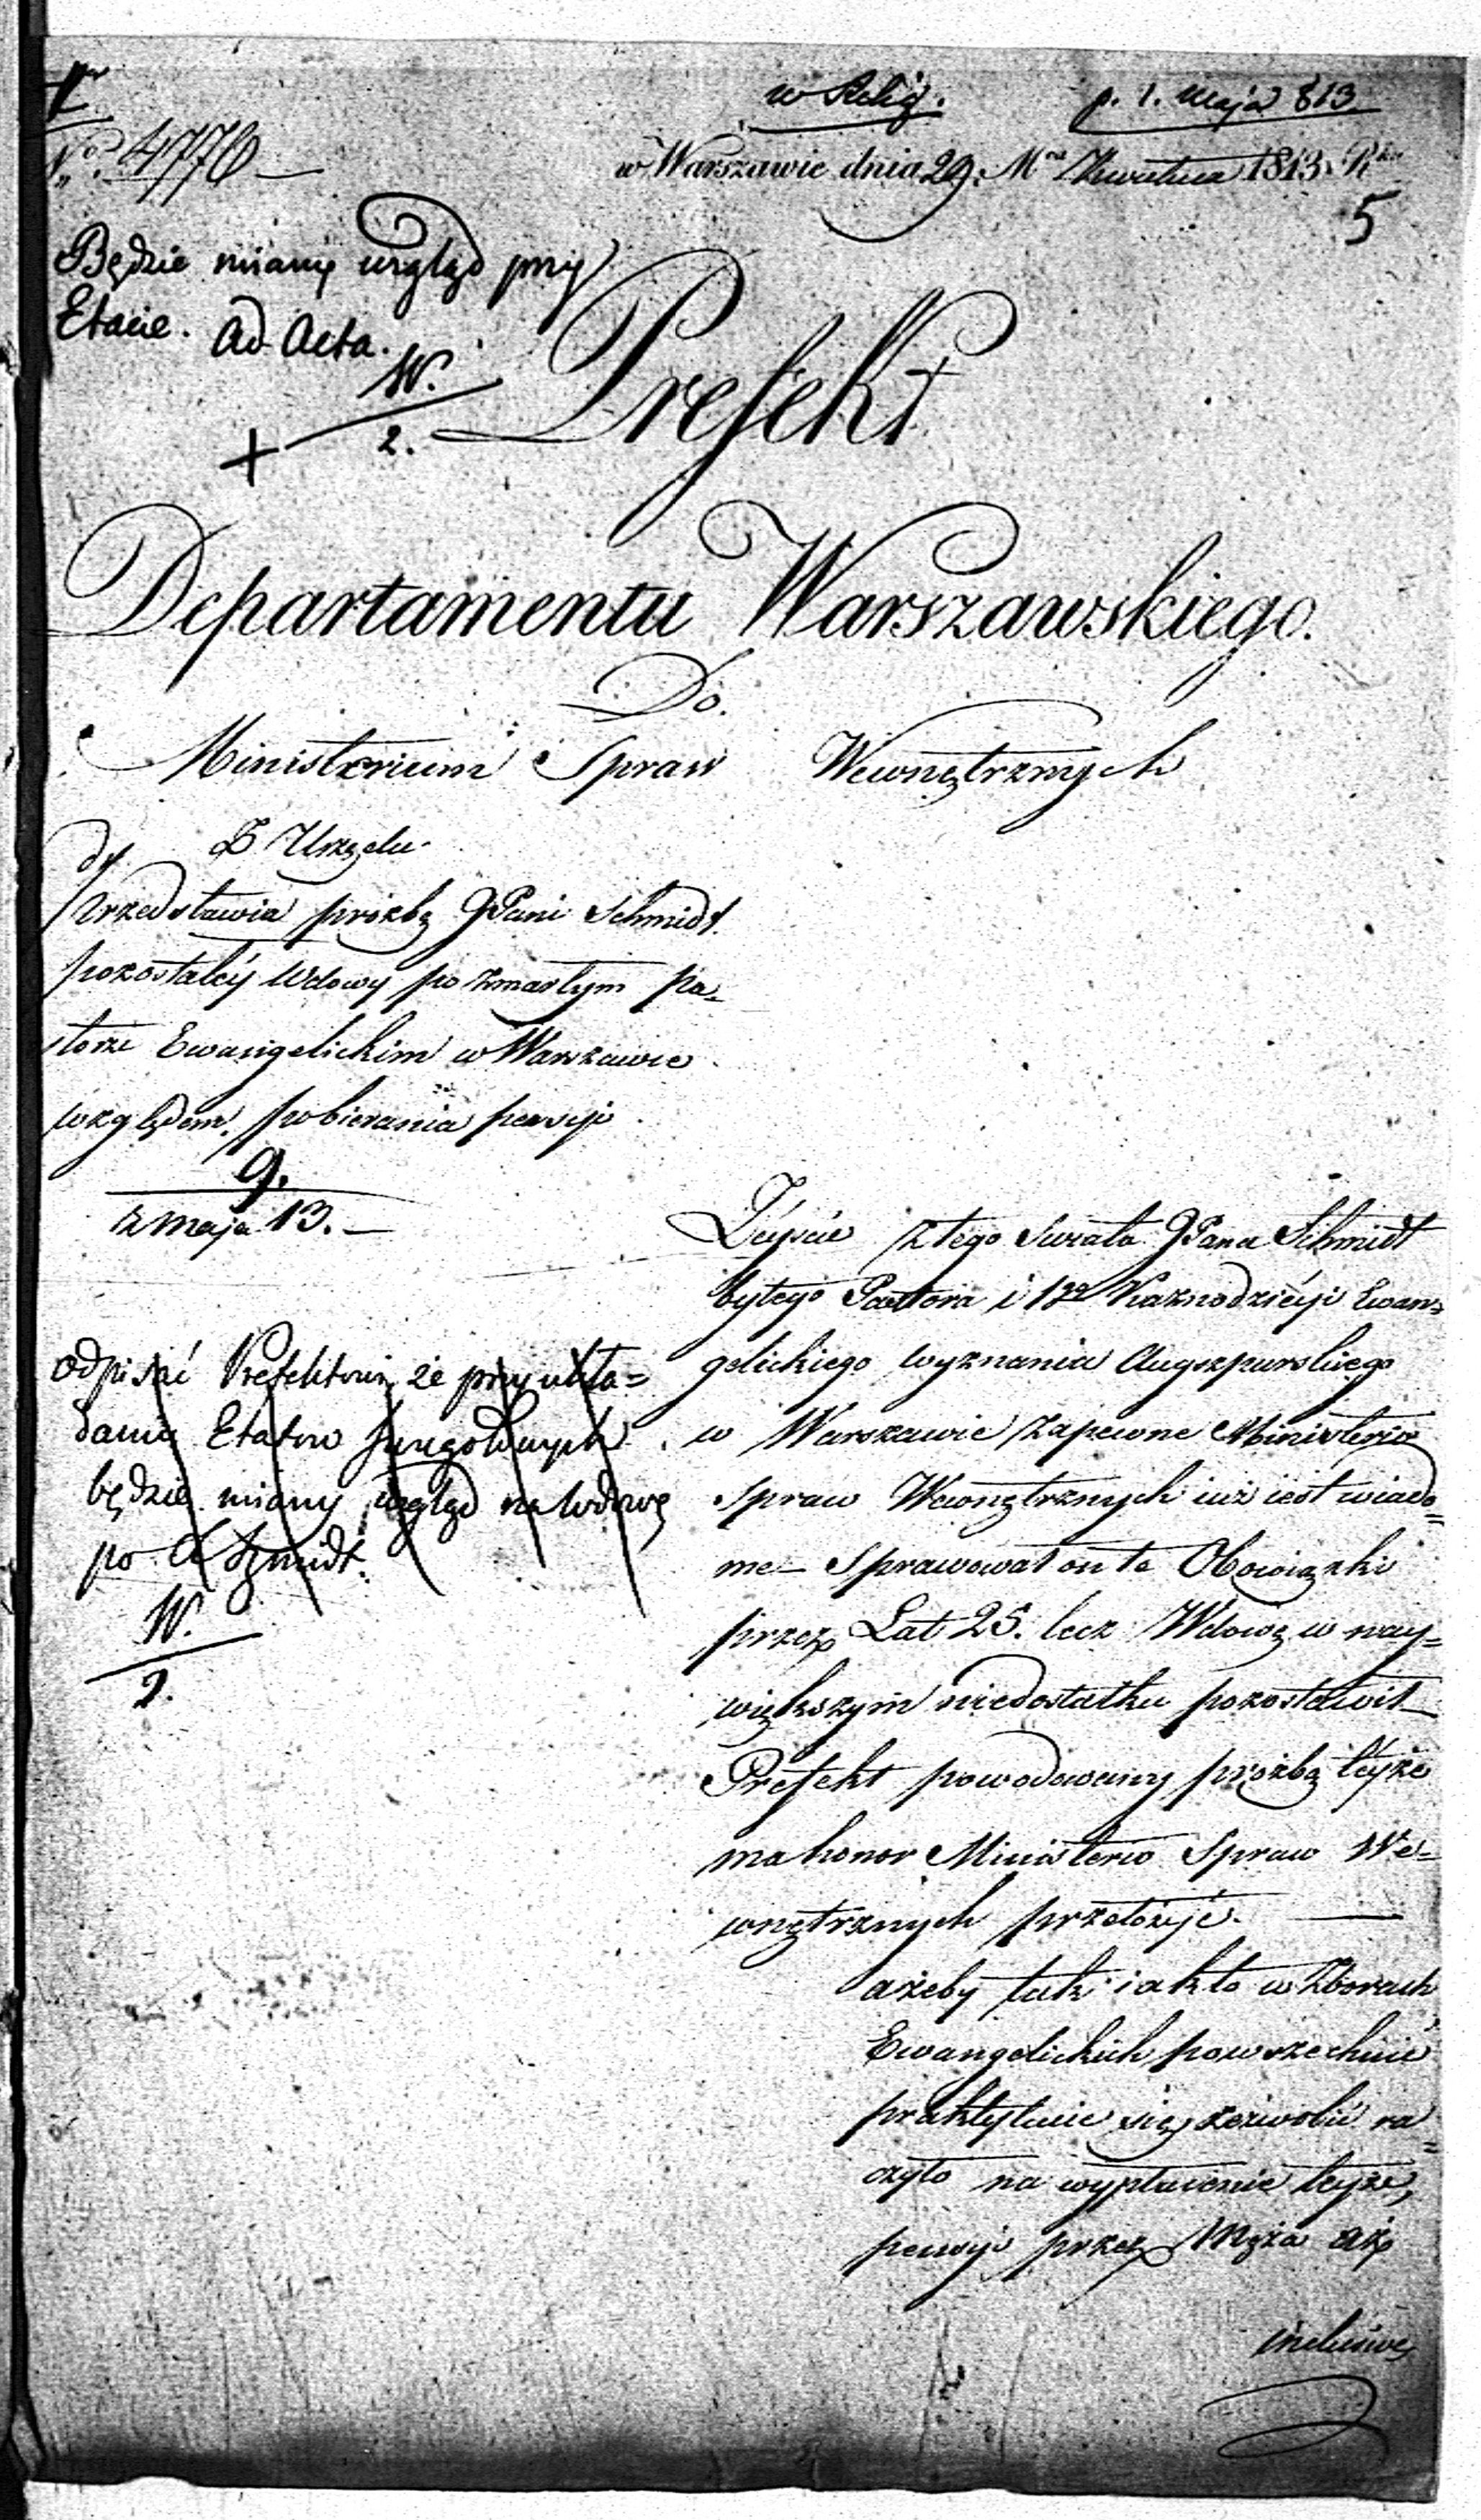 w Relig. p. 1. Maja 813
No. 4776
w Warszawie dnia 29. Mca Kwietnia 1813 Rku
5
Będzie miany wzgląd przy
Etacie. Ad Acta.
W.
2.
Prefekt
Departamentu Warszawskiego.
Do.
Ministerium Spraw Wewnętrznych
Z Urzędu.
Przedstawia prośbę JPani Schmidt
pozostałéy Wdowy po zmarłym Pa-
storze Ewangelickim w Warszawie
względem pobierania pensyi
9.
2 maja 13.
Odpisać Prefektowi, że przy ukła=
daniu Etatow
będzie miany wzgląd na wdowę
po Szmidt.
W.
2.
Zeyście z tego Swiata JPana Schmidt
byłego Pastora i 1go Kaznodzieyi Ewan=
gelickiego wyznania Augszpurskiego
w Warszawie zapewne Ministerio
Spraw Wewnętrznych iuż iest wiado=
me – Sprawował on te Obowiązki
przez Lat 25. lecz Wdowę w nay=
większym niedostatku pozostawił
Prefekt powodowany prożbą teyże
ma honor Ministerio Spraw We=
wnętrznych przełożyć. –
ażeby tak iak to w Zborach
Ewangelickich powszechnie
praktykuie się, zezwolić ra=
czyło na wypłacenie teyże,
pensyi przez Męża aż
inclusive,